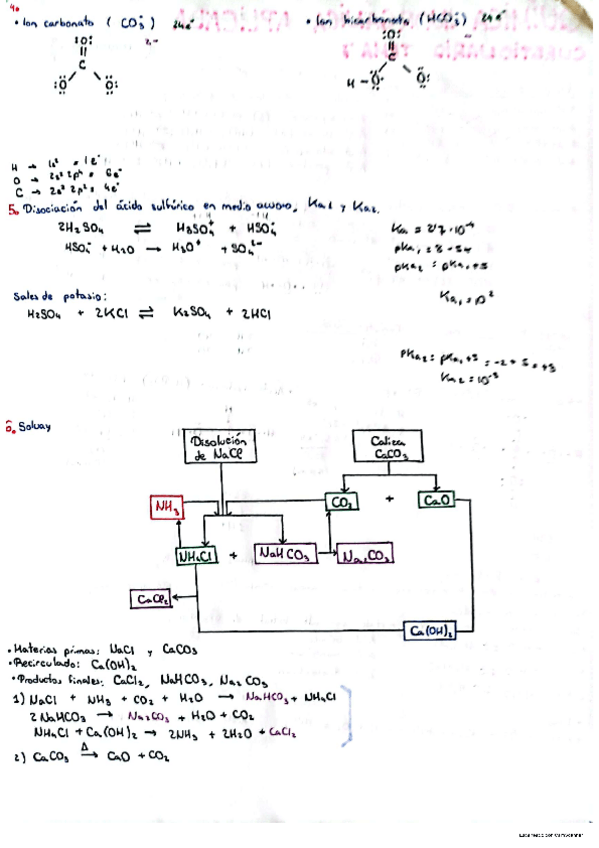 4.
• Ion carbonato (CO₃²⁻) 24e⁻
• Ion bicarbonato (HCO₃⁻) 24e⁻
:O:
C
:O: :O:
:O:
C
H - O: O:
H → 1s¹ = 1e⁻
O → 2s² 2p⁴ = 6e⁻
C → 2s² 2p² = 4e⁻
5. Disociación del ácido sulfúrico en medio acuoso, Ka1 y Ka2.
2H₂SO₄ ⇌ H₃SO₄⁺ + HSO₄⁻
HSO₄⁻ + H₂O → H₃O⁺ + SO₄²⁻
pKa₂ = pKa₁ + 5
Sales de potasio:
H₂SO₄ + 2KCl ⇌ K₂SO₄ + 2HCl
pKa₂ = pKa₁ + 5 = -2 + 5 = +3
Ka₂ = 10⁻³
6. Solvay
Disolución de NaCl
Caliza CaCO₃
NH₃
CO₂ + CaO
NH₄Cl + NaHCO₃ Na₂CO₃
CaCl₂
Ca(OH)₂
• Materias primas: NaCl y CaCO₃
• Recirculado: Ca(OH)₂
• Productos finales: CaCl₂, NaHCO₃, Na₂CO₃
1) NaCl + NH₃ + CO₂ + H₂O → NaHCO₃ + NH₄Cl
2NaHCO₃ → Na₂CO₃ + H₂O + CO₂
NH₄Cl + Ca(OH)₂ → 2NH₃ + 2H₂O + CaCl₂
2) CaCO₃ Δ→ CaO + CO₂